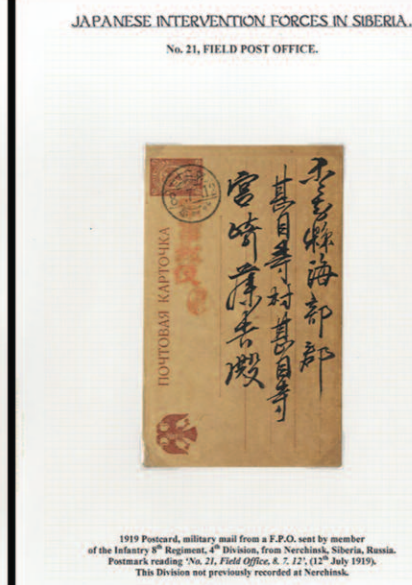 JAPANESE INTERVENTION FORCES IN SIBERIA.
No. 21, FIELD POST OFFICE.
縣海部郡
甚目寺村甚目寺
宮崎藤吉殿
ПОЧТОВАЯ КАРТОЧКА
1919 Postcard, military mail from a F.P.O. sent by member
of the Infantry 8th Regiment, 4th Division, from Nerchinsk, Siberia, Russia.
Postmark reading ‘No. 21, Field Office, 8. 7. 12’, (12th July 1919).
This Division not previously recorded at Nerchinsk.